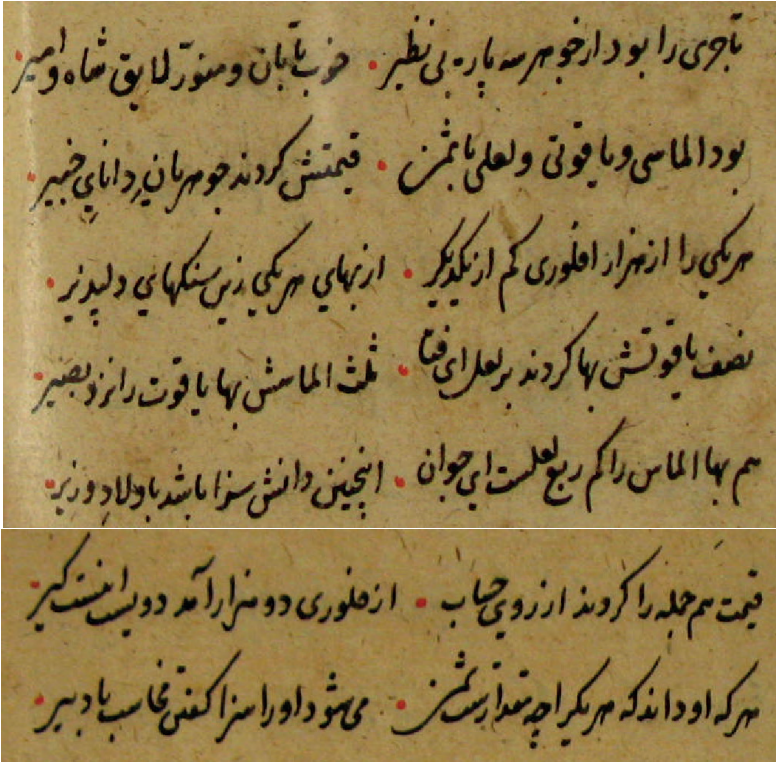 تاجری را بود از جوهر سه پاره بی نظیر . خوب تابان و منوّر لایق شاه و امیر
بود الماسی و یاقوتی و لعلی با ثمن . قیمتش کردند جوهریان دانای خبیر
هر یکی را از هزار افلوری کم از یکدیگر . از بهای هر یکی زین سنکهای دلپذیر
نصف یاقوتش بها کردند بر لعل ای فتا . ثلث الماسش بها یاقوت را نزد بصیر
هم بها الماس را کم ربع لعلست ای جوان . اینچنین دانش سزا باشد باولاد وزیر
قیمت هم جمله را کردند از روی حساب . از فلوری دو هزار آمد دویست
هر که او داند که هر یکرا چه مقدارست ثمن . می شود او را سزا کفتن محاسب یا دبیر